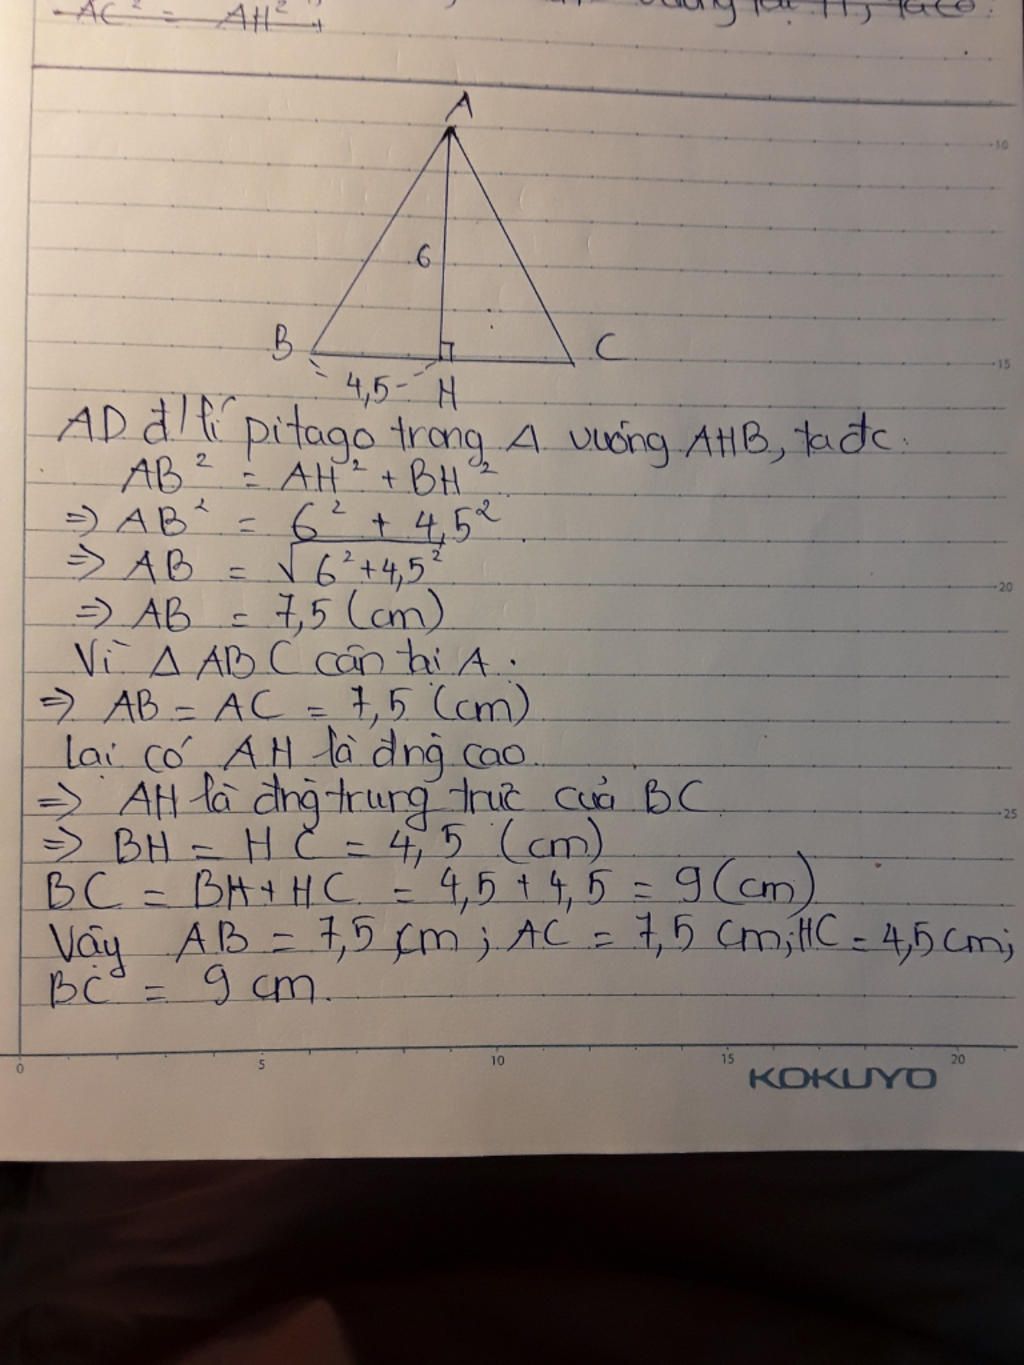 AC² = AH²
A
10
6
B
C
15
4,5
H
AD đ/lí pitago trong Δ vuông AHB, ta đc:
AB² = AH² + BH²
=> AB² = 6² + 4,5²
=> AB = √6²+4,5²
20
=> AB = 7,5 (cm)
Vì Δ ABC cân tại A.
=> AB = AC = 7,5 (cm)
lại có AH là đng cao
=> AH là đng trung trực của BC
25
=> BH = HC = 4,5 (cm)
BC = BH + HC = 4,5 + 4,5 = 9 (cm)
Vậy AB = 7,5 cm; AC = 7,5 cm; HC = 4,5 cm;
BC = 9 cm.
0 5 10 15 20
KOKUYO